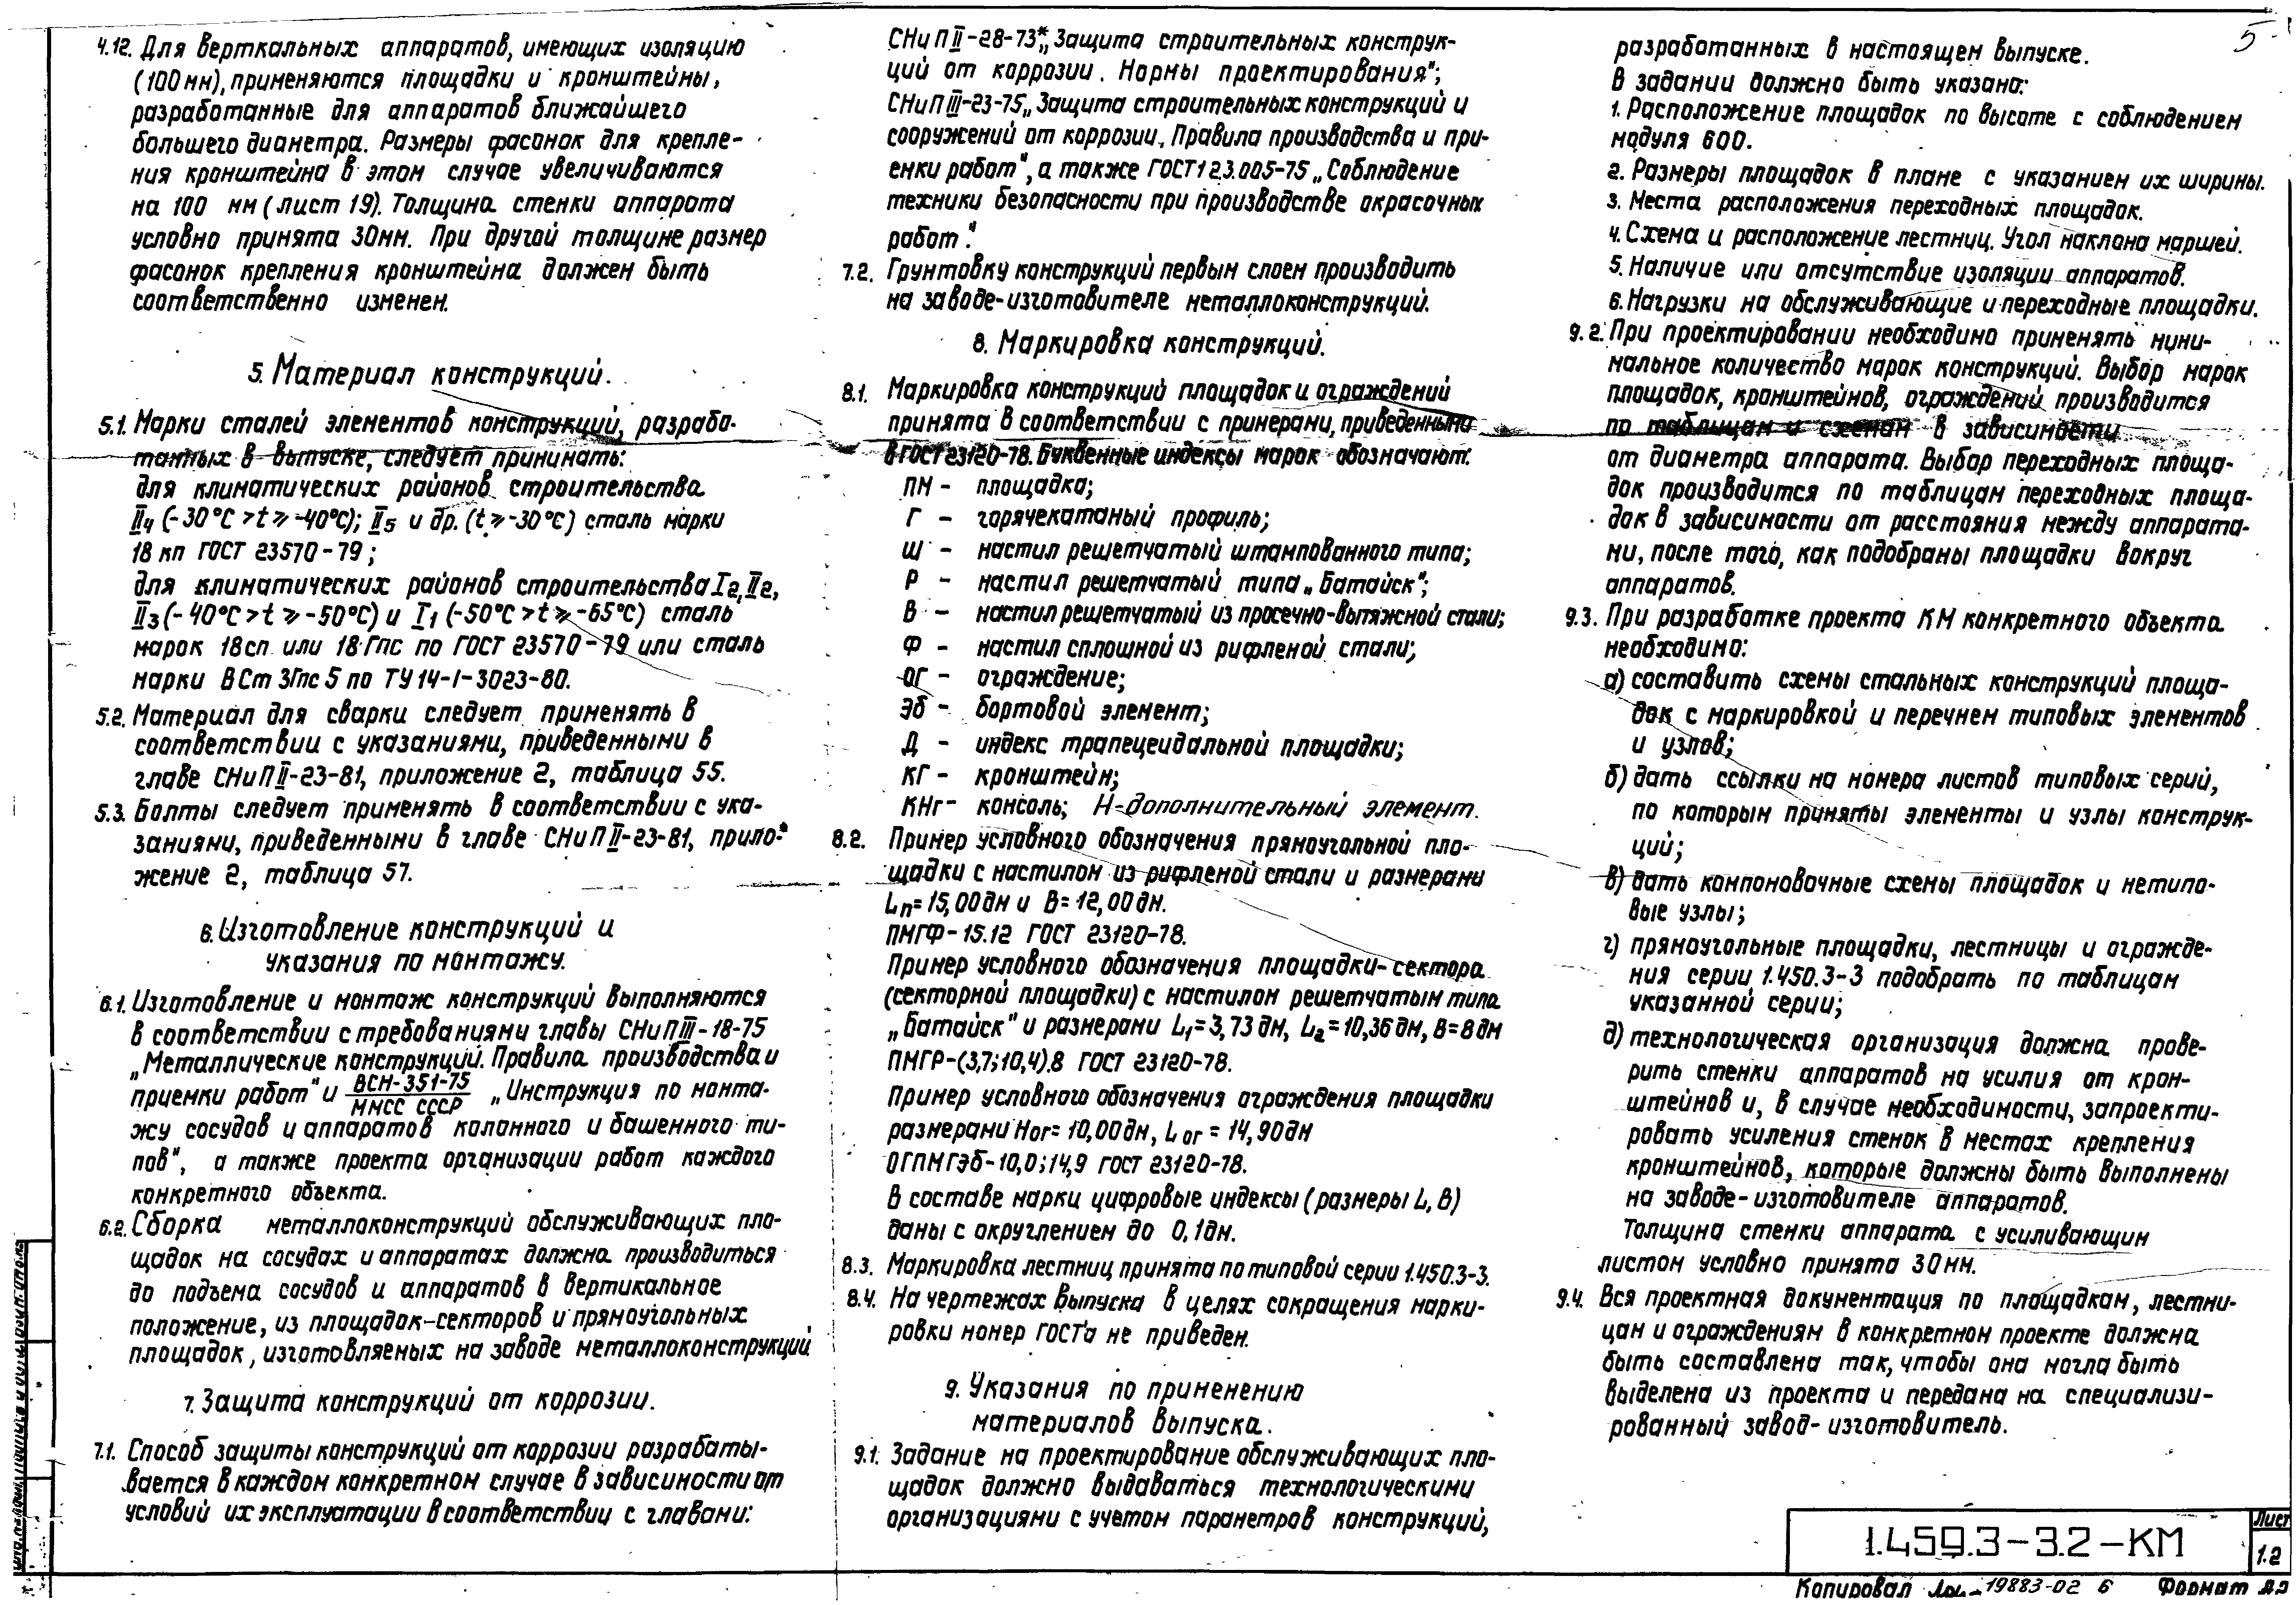 4.12. Для верткальных аппаратов, имеющих изоляцию
(100 мм), применяются площадки и кронштейны,
разработанные для аппаратов ближайшего
большего диаметра. Размеры фасонок для крепле-
ния кронштейна в этом случае увеличиваются
на 100 мм (лист 19). Толщина стенки аппарата
условно принята 30мм. При другой толщине размер
фасонок крепления кронштейна должен быть
соответственно изменен.
5. Материал конструкций.
5.1. Марки сталей элементов конструкций, разрабо-
танных в выпуске, следует принимать:
для климатических районов строительства
II4 (-30°C > t ⩾ -40°C); II5 и др. (t ⩾ -30°C) сталь марки
18 кп ГОСТ 23570-79;
для климатических районов строительства I2, II2,
II3 (-40°C > t ⩾ -50°C) и I1 (-50°C > t ⩾ -65°C) сталь
марок 18сп или 18Гпс по ГОСТ 23570-79 или сталь
марки ВСт 3Гпс 5 по ТУ 14-1-3023-80.
5.2. Материал для сварки следует применять в
соответствии с указаниями, приведенными в
главе СНиП II-23-81, приложение 2, таблица 55.
5.3. Болты следует применять в соответствии с ука-
заниями, приведенными в главе СНиП II-23-81, прило-
жение 2, таблица 57.
6. Изготовление конструкций и
указания по монтажу.
6.1. Изготовление и монтаж конструкций выполняются
в соответствии с требованиями главы СНиП III-18-75
„Металлические конструкций. Правила производства и
приемки работ" и ВСН-351-75 / ММСС СССР „Инструкция по монта-
жу сосудов и аппаратов колонного и башенного ти-
пов", а также проекта организации работ каждого
конкретного объекта.
6.2. Сборка металлоконструкций обслуживающих пло-
щадок на сосудах и аппаратах должна производиться
до подъема сосудов и аппаратов в вертикальное
положение, из площадок-секторов и прямоугольных
площадок, изготовляемых на заводе металлоконструкций
7. Защита конструкций от коррозии.
7.1. Способ защиты конструкций от коррозии разрабаты-
вается в каждом конкретном случае в зависимости от
условий их эксплуатации в соответствии с главами:
СНиП II-28-73* „Защита строительных конструк-
ций от коррозии. Нормы проектирования";
СНиП III-23-75 „Защита строительных конструкций и
сооружений от коррозии. Правила производства и при-
емки работ", а также ГОСТ 12.3.005-75 „Соблюдение
техники безопасности при производстве окрасочных
работ".
7.2. Грунтовку конструкций первым слоем производить
на заводе-изготовителе металлоконструкций.
8. Маркировка конструкций.
8.1. Маркировка конструкций площадок и ограждений
принята в соответствии с примерами, приведенными
в ГОСТ 23120-78. Буквенные индексы марок обозначают:
ПМ - площадка;
Г - горячекатаный профиль;
Ш - настил решетчатый штампованного типа;
Р - настил решетчатый типа „Батайск";
В - настил решетчатый из просечно-вытяжной стали;
Ф - настил сплошной из рифленой стали;
ОГ - ограждение;
Эб - бортовой элемент;
Д - индекс трапецеидальной площадки;
КГ - кронштейн;
КНг - консоль; Н-дополнительный элемент.
8.2. Пример условного обозначения прямоугольной пло-
щадки с настилом из рифленой стали и размерами
Lп = 15,00 дм и В = 12,00 дм.
ПМГФ-15.12 ГОСТ 23120-78.
Пример условного обозначения площадки-сектора
(секторной площадки) с настилом решетчатым типа
„Батайск" и размерами L1 = 3,73 дм, L2 = 10,36 дм, В = 8 дм
ПМГР-(3,7;10,4).8 ГОСТ 23120-78.
Пример условного обозначения ограждения площадки
размерами Hог = 10,00 дм, Lог = 14,90 дм
ОГПМГЭб-10,0;14,9 ГОСТ 23120-78.
В составе марки цифровые индексы (размеры L, В)
даны с округлением до 0,1дм.
8.3. Маркировка лестниц принята по типовой серии 1.450.3-3.
8.4. На чертежах выпуска в целях сокращения марки-
ровки номер ГОСТ'а не приведен.
9. Указания по применению
материалов выпуска.
9.1. Задание на проектирование обслуживающих пло-
щадок должно выдаваться технологическими
организациями с учетом параметров конструкций,
5
разработанных в настоящем выпуске.
В задании должно быть указано:
1. Расположение площадок по высоте с соблюдением
модуля 600.
2. Размеры площадок в плане с указанием их ширины.
3. Места расположения переходных площадок.
4. Схема и расположение лестниц. Угол наклона маршей.
5. Наличие или отсутствие изоляции аппаратов.
6. Нагрузки на обслуживающие и переходные площадки.
9.2. При проектировании необходимо применять мини-
мальное количество марок конструкций. Выбор марок
площадок, кронштейнов, ограждений производится
по таблицам и схемам в зависимости
от диаметра аппарата. Выбор переходных площа-
док производится по таблицам переходных площа-
док в зависимости от расстояния между аппарата-
ми, после того, как подобраны площадки вокруг
аппаратов.
9.3. При разработке проекта КМ конкретного объекта
необходимо:
а) составить схемы стальных конструкций площа-
док с маркировкой и перечнем типовых элементов
и узлов;
б) дать ссылки на номера листов типовых серий,
по которым приняты элементы и узлы конструк-
ций;
в) дать компоновочные схемы площадок и нетипо-
вые узлы;
г) прямоугольные площадки, лестницы и огражде-
ния серии 1.450.3-3 подобрать по таблицам
указанной серии;
д) технологическая организация должна прове-
рить стенки аппаратов на усилия от крон-
штейнов и, в случае необходимости, запроекти-
ровать усиления стенок в местах крепления
кронштейнов, которые должны быть выполнены
на заводе-изготовителе аппаратов.
Толщина стенки аппарата с усиливающим
листом условно принята 30мм.
9.4. Вся проектная документация по площадкам, лестни-
цам и ограждениям в конкретном проекте должна
быть составлена так, чтобы она могла быть
выделена из проекта и передана на специализи-
рованный завод-изготовитель.
1.459.3-3.2-КМ
Лист
1.2
Копировал 19883-02 6 Формат